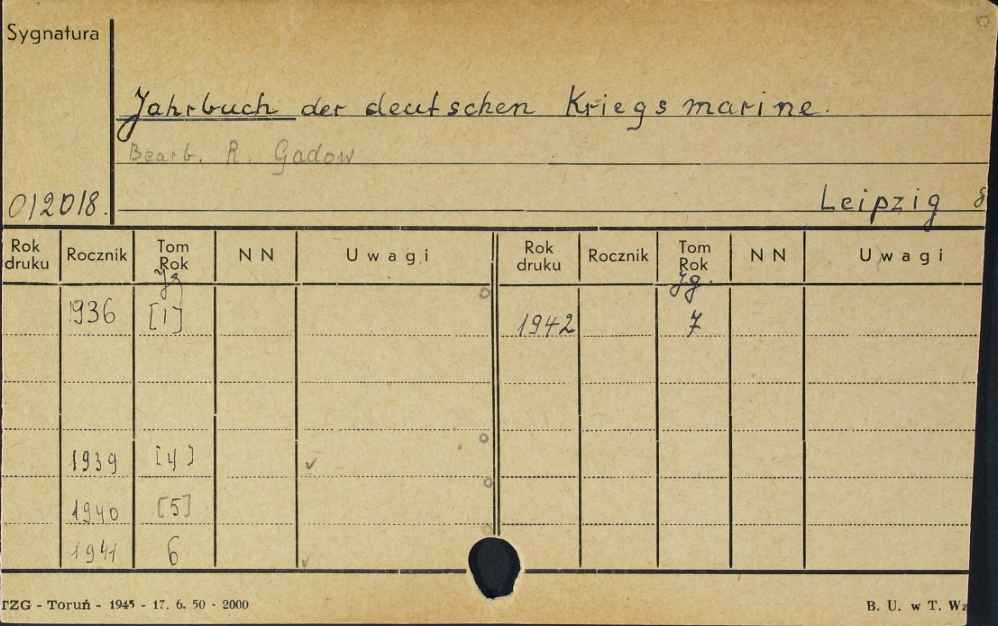 Sygnatura
Jahrbuch der deutschen Kriegsmarine.
Bearb. R. Gadow
012018.
Leipzig 8
Rok druku Rocznik Tom Rok NN Uwagi Rok druku Rocznik Tom Rok NN Uwagi
Jg Jg.
1936 [1]
1942 7
1939 [4]
1940 [5]
1941 6
TZG - Toruń - 1945 - 17. 6. 50 - 2000
B. U. w T.